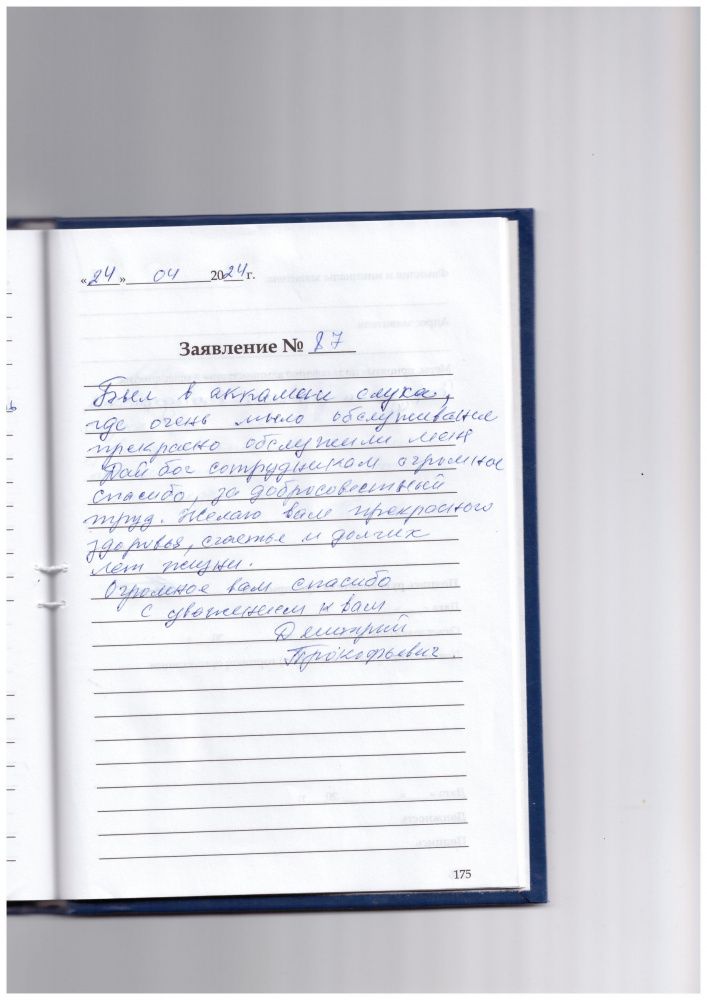 «24» 04 2024 г.
Заявление № 87
Был в аккамои слуха,
где очень мыло обслуживание
прекрасно обслужили меня
Дай бог сотрудникам огромное
спасибо, за добросовестный
труд. Желаю вам прекрасного
здоровья, счастье и долгих
лет жизни.
Огромное вам спасибо
С уважением к вам
Дмитрий
Прокофьевич.
175